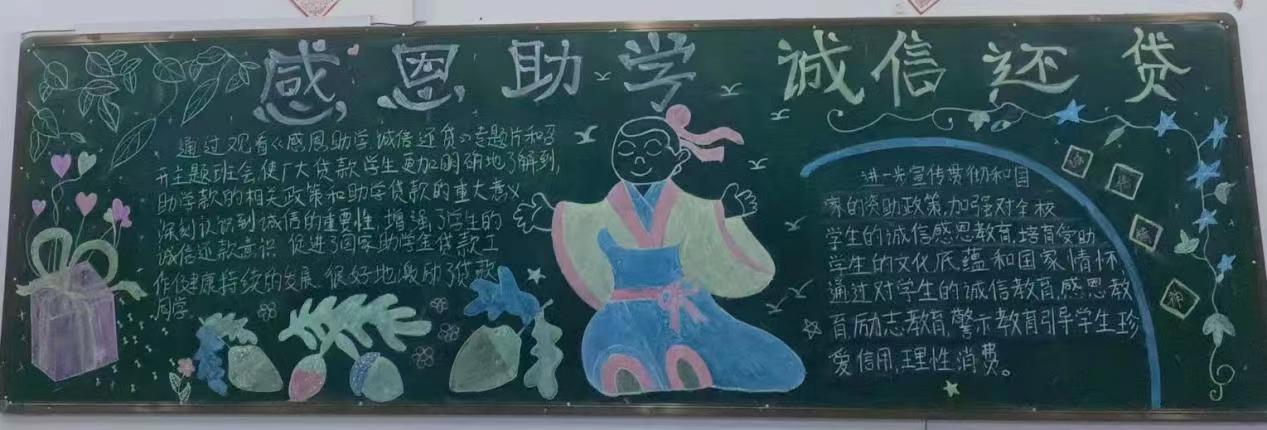 感恩助学 诚信还贷
通过观看《感恩助学诚信还贷》专题片和召
开主题班会使广大贷款学生更加明确地了解到,
助学款的相关政策和助学贷款的重大意义
深刻认识到诚信的重要性,增强了学生的
诚信还款意识 促进了国家助学金贷款工
作健康持续的发展.很好地激励了贷款
同学.
进一步宣传贯彻和国
家的资助政策,加强对全校
学生的诚信感恩教育,培育受助
学生的文化底蕴和国家情怀,
通过对学生的诚信教育,感恩教
育,励志教育,警示教育引导学生珍
爱信用,理性消费。